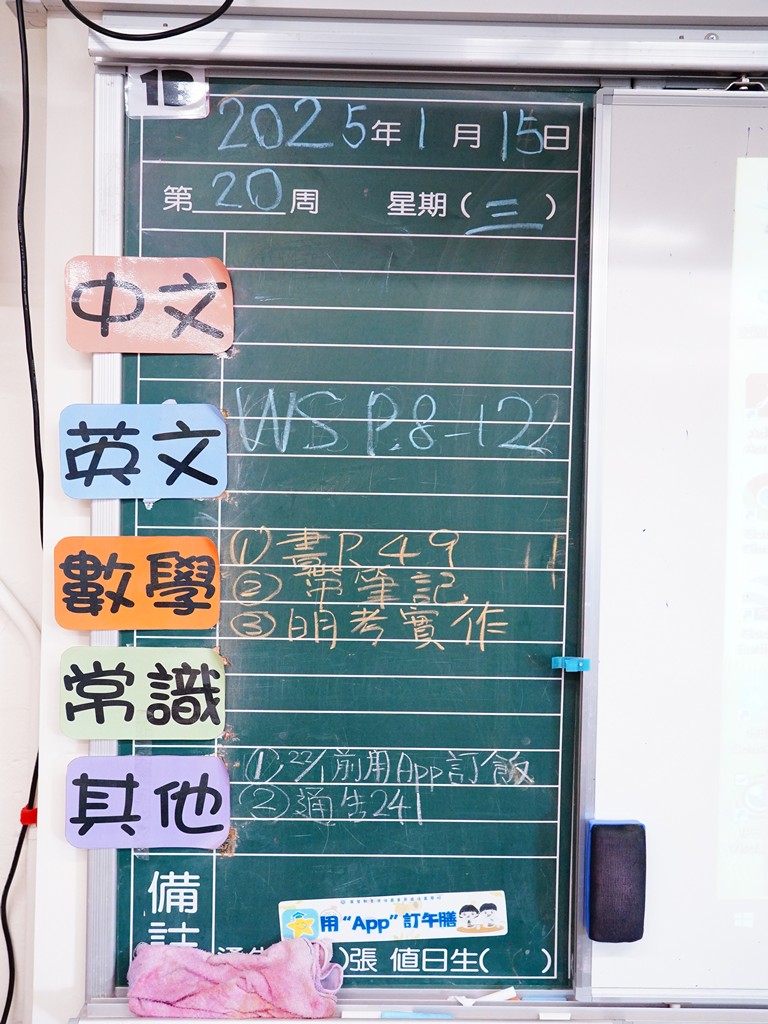 1D
2025年1月15日
第20周 星期(三)
中文
英文 WS P.8-12
數學 ①書P.49
②帶筆記
③明考實作
常識
其他 ①22/1前用App訂飯
②通告241
備註
用“App”訂午膳
)張 值日生( )